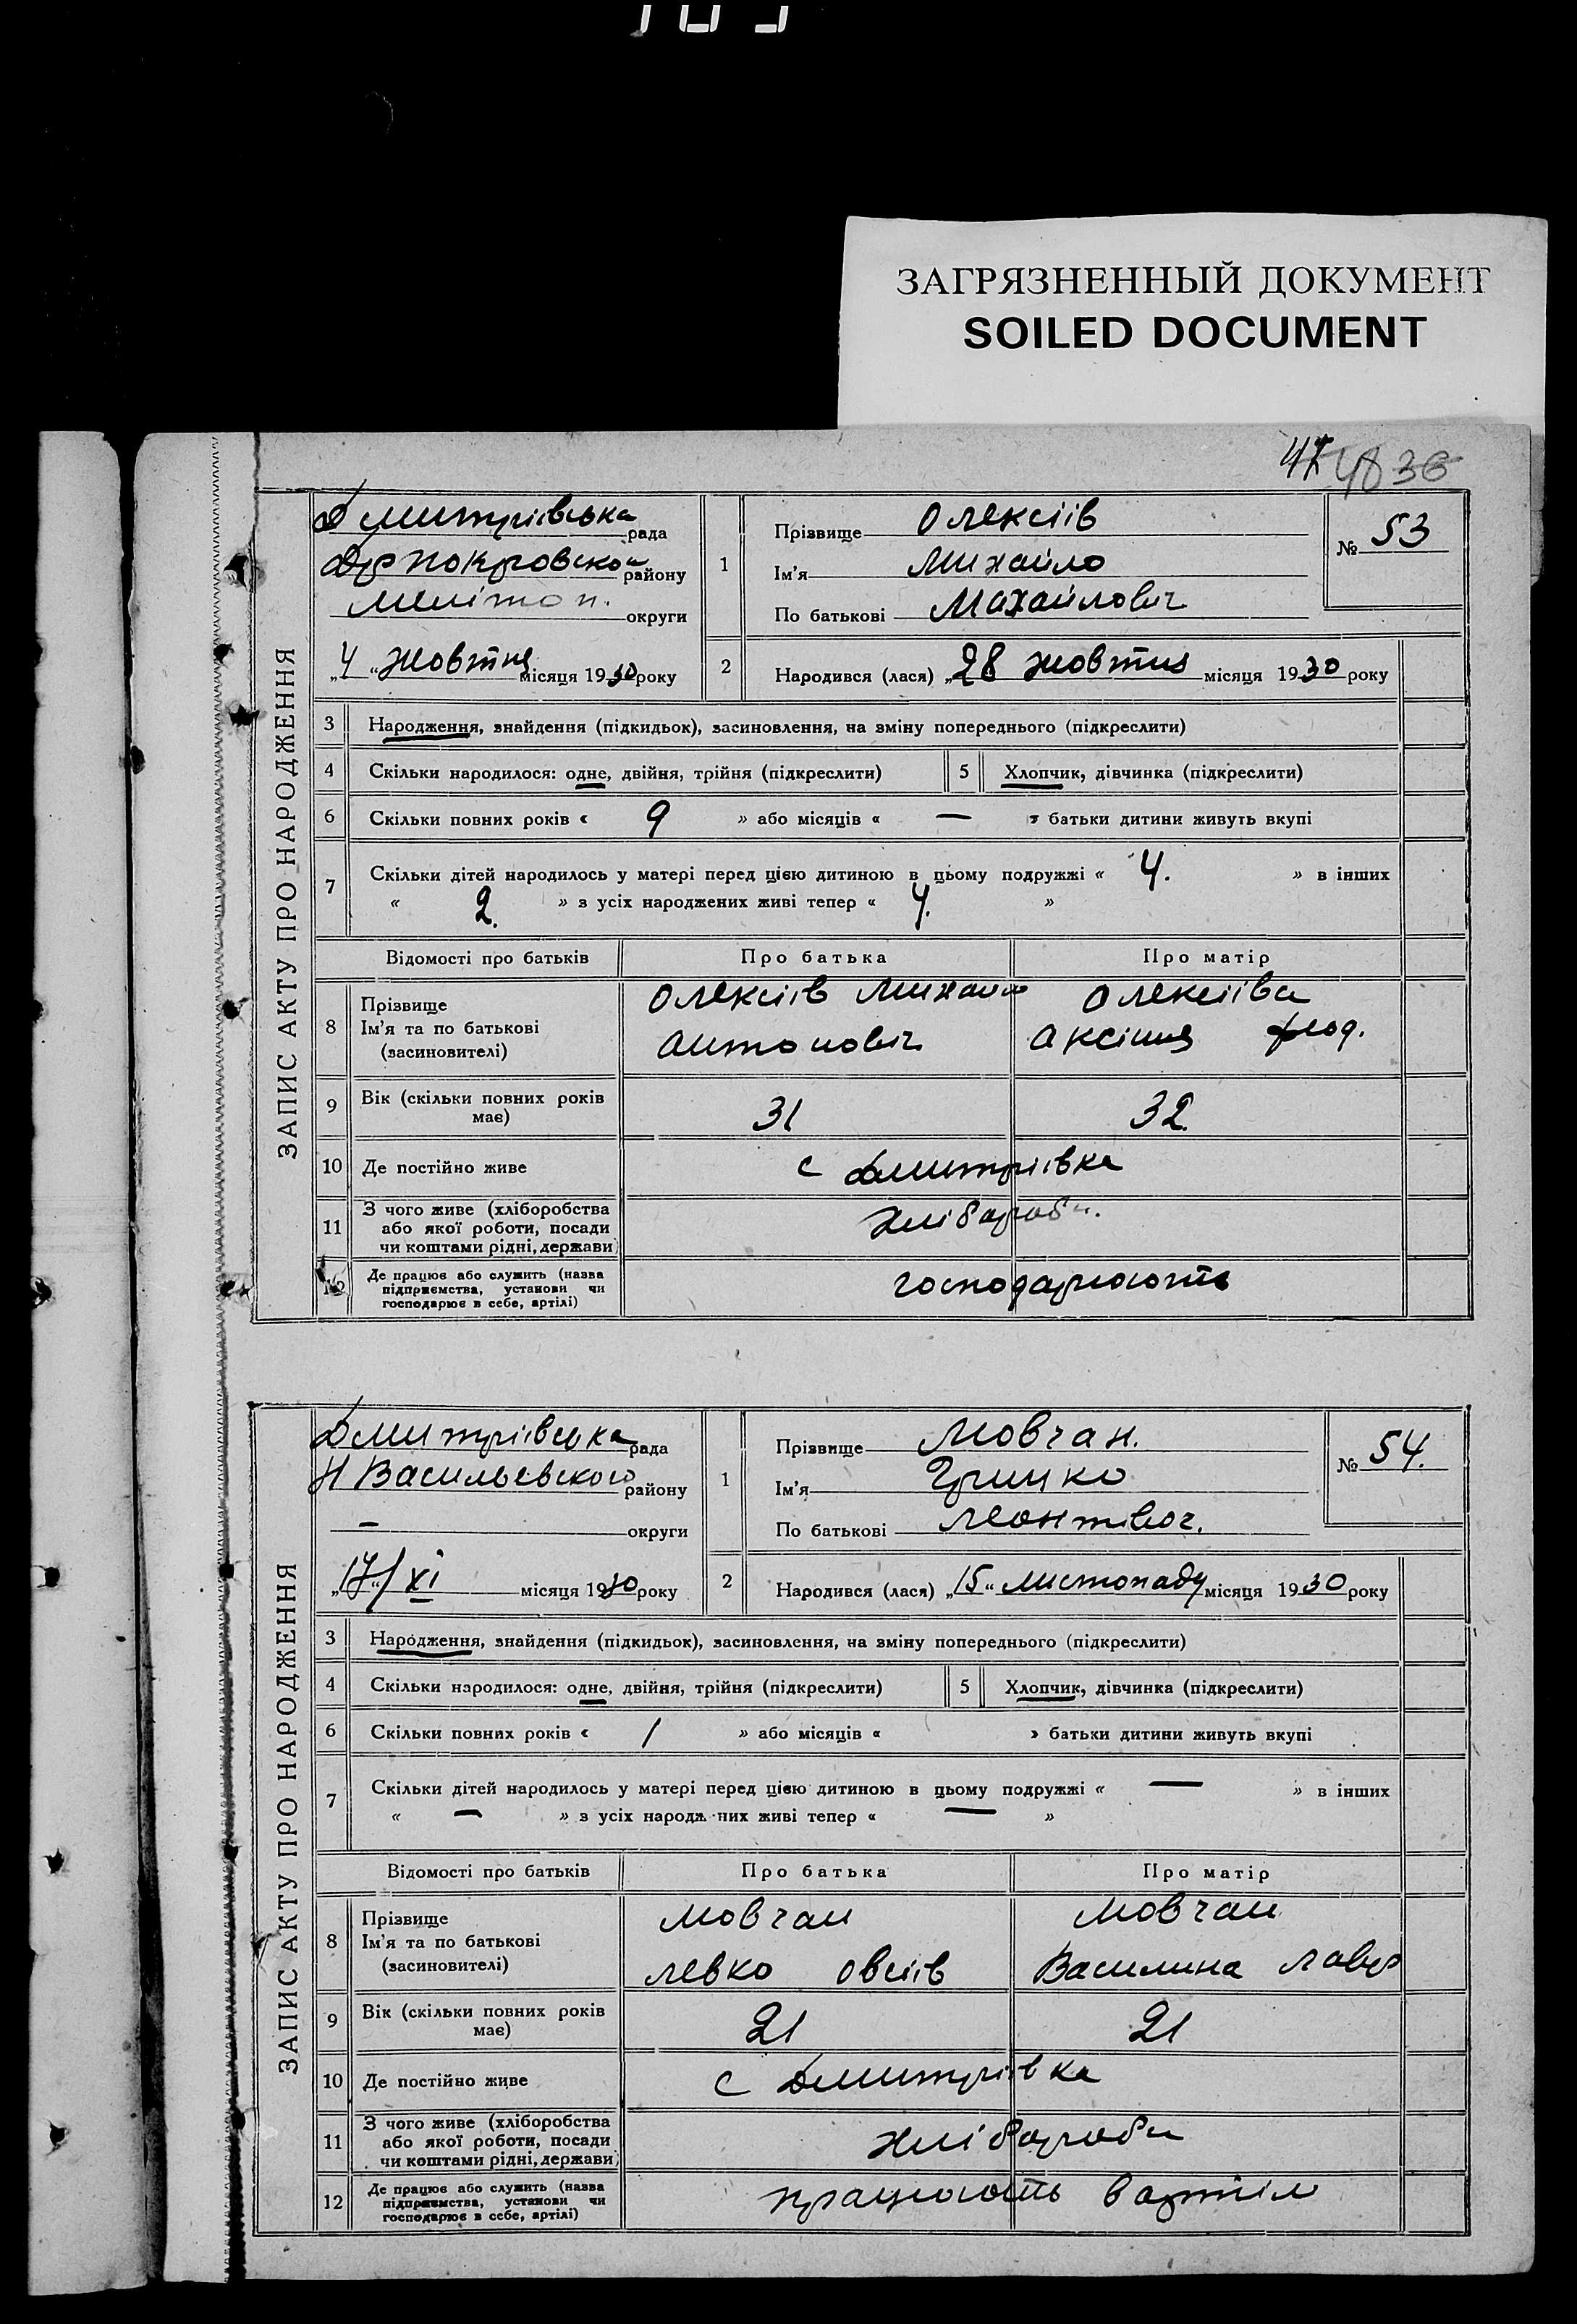 ЗАГРЯЗНЕННЫЙ ДОКУМЕНТ
SOILED DOCUMENT
47 48 36
ЗАПИС АКТУ ПРО НАРОДЖЕННЯ
Дмитрівська рада
району
Меліто п. округи
"4" Жовтня місяця 1930 року
1
Прізвище Олексіїв
Ім'я Михайло
По батькові Михайлович
№ 53
2
Народився (лася) "28 жовтня місяця 1930 року
3 Народження, знайдення (підкидьок), засиновлення, на зміну попереднього (підкреслити)
4 Скільки народилося: одне, двійня, трійня (підкреслити) 5 Хлопчик, дівчинка (підкреслити)
6 Скільки повних років « 9 » або місяців « — » батьки дитини живуть вкупі
7 Скільки дітей народилось у матері перед цією дитиною в цьому подружжі « 4. » в інших
« 2. » з усіх народжених живі тепер « 4. »
Відомості про батьків Про батька Про матір
8 Прізвище
Ім'я та по батькові
(засиновителі)
Олексіїв Михайло
Антонович
Олексіїва
Аксіния Фіод.
9 Вік (скільки повних років
має)
31 32
10 Де постійно живе с Дмитрівка
11 З чого живе (хліборобства
або якої роботи, посади
чи коштами рідні, держави)
Хлібороби.
12 Де працює або служить (назва
підприємства, установи чи
господарює в себе, артілі)
господарюють
ЗАПИС АКТУ ПРО НАРОДЖЕННЯ
Дмитрівська рада
Н Васильевского району
— округи
"17"/XI місяця 1930 року
1
Прізвище Мовчан.
Ім'я Грицко
По батькові Леонтівоч.
№ 54.
2
Народився (лася) "15" листопаду місяця 1930 року
3 Народження, знайдення (підкидьок), засиновлення, на зміну попереднього (підкреслити)
4 Скільки народилося: одне, двійня, трійня (підкреслити) 5 Хлопчик, дівчинка (підкреслити)
6 Скільки повних років « 1 » або місяців « » батьки дитини живуть вкупі
7 Скільки дітей народилось у матері перед цією дитиною в цьому подружжі « — » в інших
« — » з усіх народж них живі тепер « — »
Відомості про батьків Про батька Про матір
8 Прізвище
Ім'я та по батькові
(засиновителі)
Мовчан
Левко Овсіїв
Мовчан
Василина Лавр
9 Вік (скільки повних років
має)
21 21
10 Де постійно живе с Дмитрівка
11 З чого живе (хліборобства
або якої роботи, посади
чи коштами рідні, держави)
Хлібороби
12 Де працює або служить (назва
підприємства, установи чи
господарює в себе, артілі)
працюють в артіл